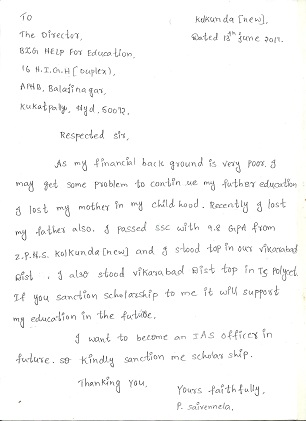 TO
Kolkunda [new],
The Director,
Dated 13th June 2017.
BZG HELP For Education,
16 H.I.G.H [Duplex],
APHB, Balajinagar,
Kukatpally, Hyd,
Respected sir,
As my financial back ground is very poor. I
may get some problem to contin ue my futher education
I lost my mother in my child hood. Recently I lost
my father also. I passed SSC with 9.8 GPA from
Z.P.H.S. Kolkunda [new] and I stood top in our vikarabad
Dist. I also stood vikarabad Dist top in TS Polycet.
If you sanction scholarship to me it will support
my education in the future.
I want to become an IAS officer in
future. so kindly sanction me scholar ship.
Thanking You,
Yours faithfully,
P. Sairennela.